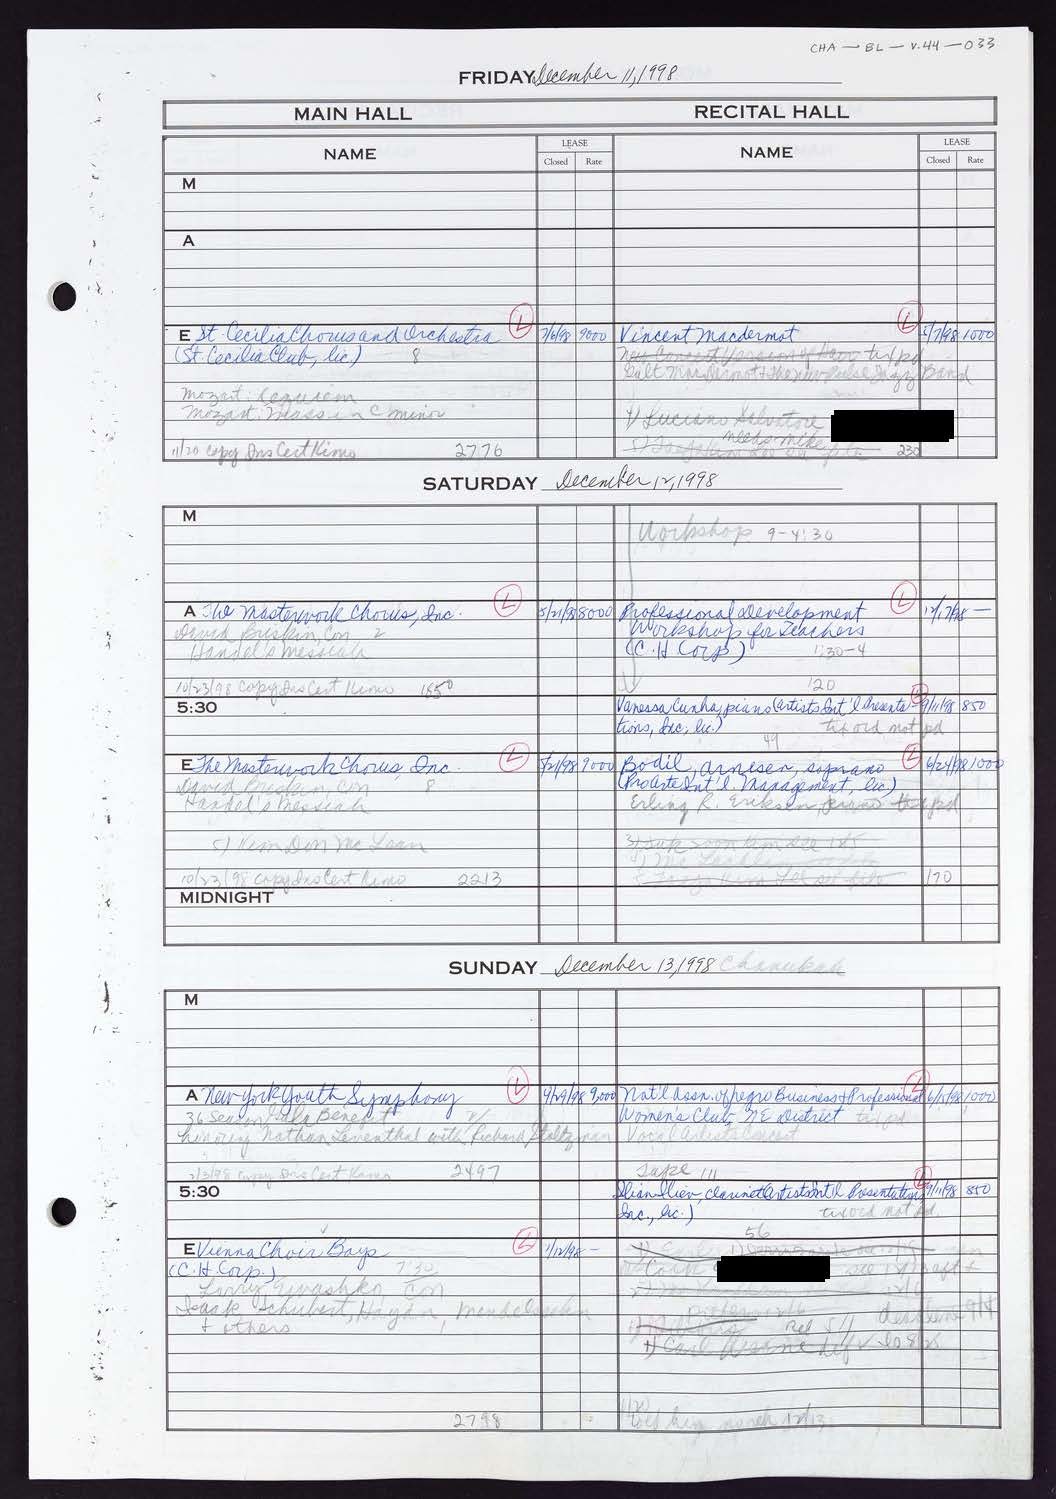 CHA — BL — v.44 — 033
FRIDAY December 11, 1998
MAIN HALL
RECITAL HALL
NAME
LEASE
Closed Rate
NAME
LEASE
Closed Rate
M
A
E St. Cecilia Chorus and Orchestra L 7/6/98 9000
(St. Cecilia Club, lic) 8
Mozart: Requiem
Mozart: Mass in C minor
11/20 copy Ins Cert Kimo 2776
Vincent Macdermot L 5/7/98 1000
New Concert Version of Hair tix pd
Galt MacDermot & the New Pulse Jazz Band
4) Luciano Salvatore
needs mike
230
SATURDAY December 12, 1998
M
Workshop 9-4:30
A The Masterwork Chorus, Inc. L 5/21/98 8000
David Briskin, Con 2
Handel's Messiah
10/23/98 Copy Ins Cert Kimo 1650
Professional Development L 12/7/98 —
Workshop for Teachers
(C.H Corp) 1:30-4
120
5:30
Vanessa Cunha, piano (Artists Int'l Presenta- L 9/11/98 850
tions, Inc, lic.) tix ord not pd
49
E The Masterwork Chorus, Inc. L 5/21/98 9000
David Briskin, Con 8
Handel's Messiah
5) Kim Don McLean
10/23/98 copy Ins Cert Kimo 2213
Bodil Arnesen, soprano L 6/24/98 1000
(Pro Arte Int'l. Management, lic)
Erling R. Eriksen, piano tix pd
170
MIDNIGHT
SUNDAY December 13, 1998 Chanukah
M
A New York Youth Symphony L 9/29/98 9,000
36 Season Gala Benefit 2/
honoring Nathan Leventhal with Richard Stoltzman
copy Ins Cert Kimo 2497
Nat'l Assn. of Negro Business & Professional L 6/15/98 1000
Women's Club, NE District tix pd
Vocal Artists Concert
Tape 111
5:30
Ilian Iliev, clarinet (Artists Int'l Presentations L 9/11/98 850
Inc., lic.) tix ord not pd.
56
E Vienna Choir Boys L 1/12/98 —
(C.H. Corp.) 7:30
Larry Givashko Con
Schubert, Haydn, Mendelssohn
+ others
2798